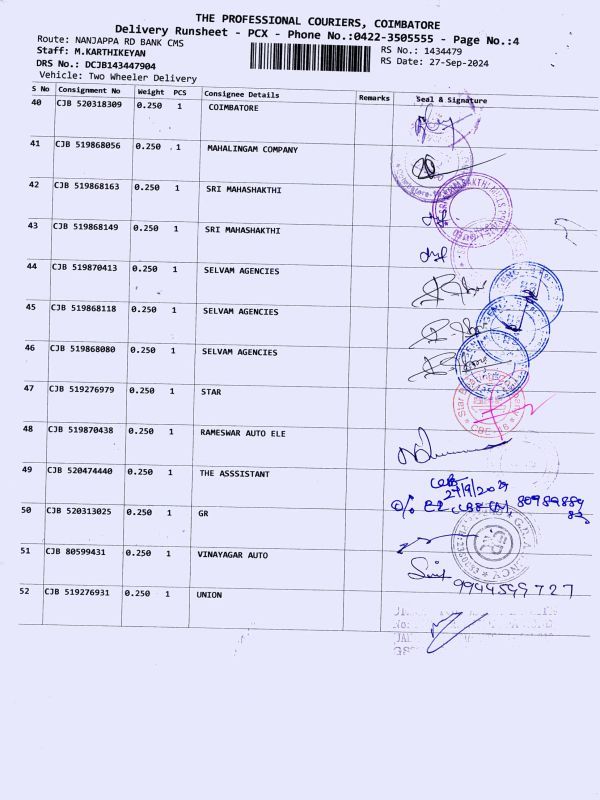 THE PROFESSIONAL COURIERS, COIMBATORE
Delivery Runsheet - PCX - Phone No.:0422-3505555 - Page No.:4
Route: NANJAPPA RD BANK CMS
RS No.: 1434479
Staff: M.KARTHIKEYAN
RS Date: 27-Sep-2024
DRS No.: DCJB143447904
Vehicle: Two Wheeler Delivery
S No Consignment No Weight PCS Consignee Details Remarks Seal & Signature
40 CJB 520318309 0.250 1 COIMBATORE
41 CJB 519868056 0.250 1 MAHALINGAM COMPANY
42 CJB 519868163 0.250 1 SRI MAHASHAKTHI
43 CJB 519868149 0.250 1 SRI MAHASHAKTHI
44 CJB 519870413 0.250 1 SELVAM AGENCIES
45 CJB 519868118 0.250 1 SELVAM AGENCIES
46 CJB 519868080 0.250 1 SELVAM AGENCIES
47 CJB 519276979 0.250 1 STAR
48 CJB 519870438 0.250 1 RAMESWAR AUTO ELE
49 CJB 520474440 0.250 1 THE ASSSISTANT
27/9/2024
50 CJB 520313025 0.250 1 GR
51 CJB 80599431 0.250 1 VINAYAGAR AUTO
9944599727
52 CJB 519276931 0.250 1 UNION